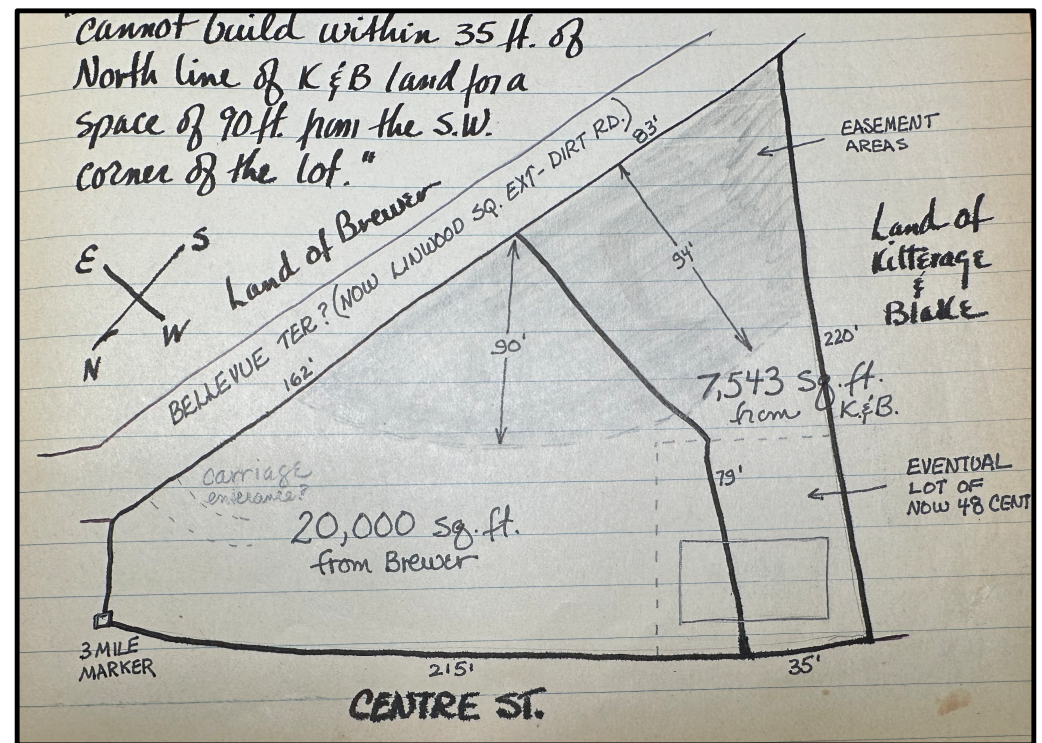 "cannot build within 35 ft. of
North line of K & B land for a
space of 90 ft. from the S.W.
corner of the lot."
E
S
N
W
Land of Brewer
BELLEVUE TER.? (NOW LINWOOD SQ. EXT - DIRT RD.)
83'
162'
90'
94'
EASEMENT
AREAS
Land of
Kitterage
&
Blake
220'
7,543 Sq. ft.
from K.&B.
79'
EVENTUAL
LOT OF
NOW 48 CENT
carriage
entrance?
20,000 sq. ft.
from Brewer
3 MILE
MARKER
215'
35'
CENTRE ST.